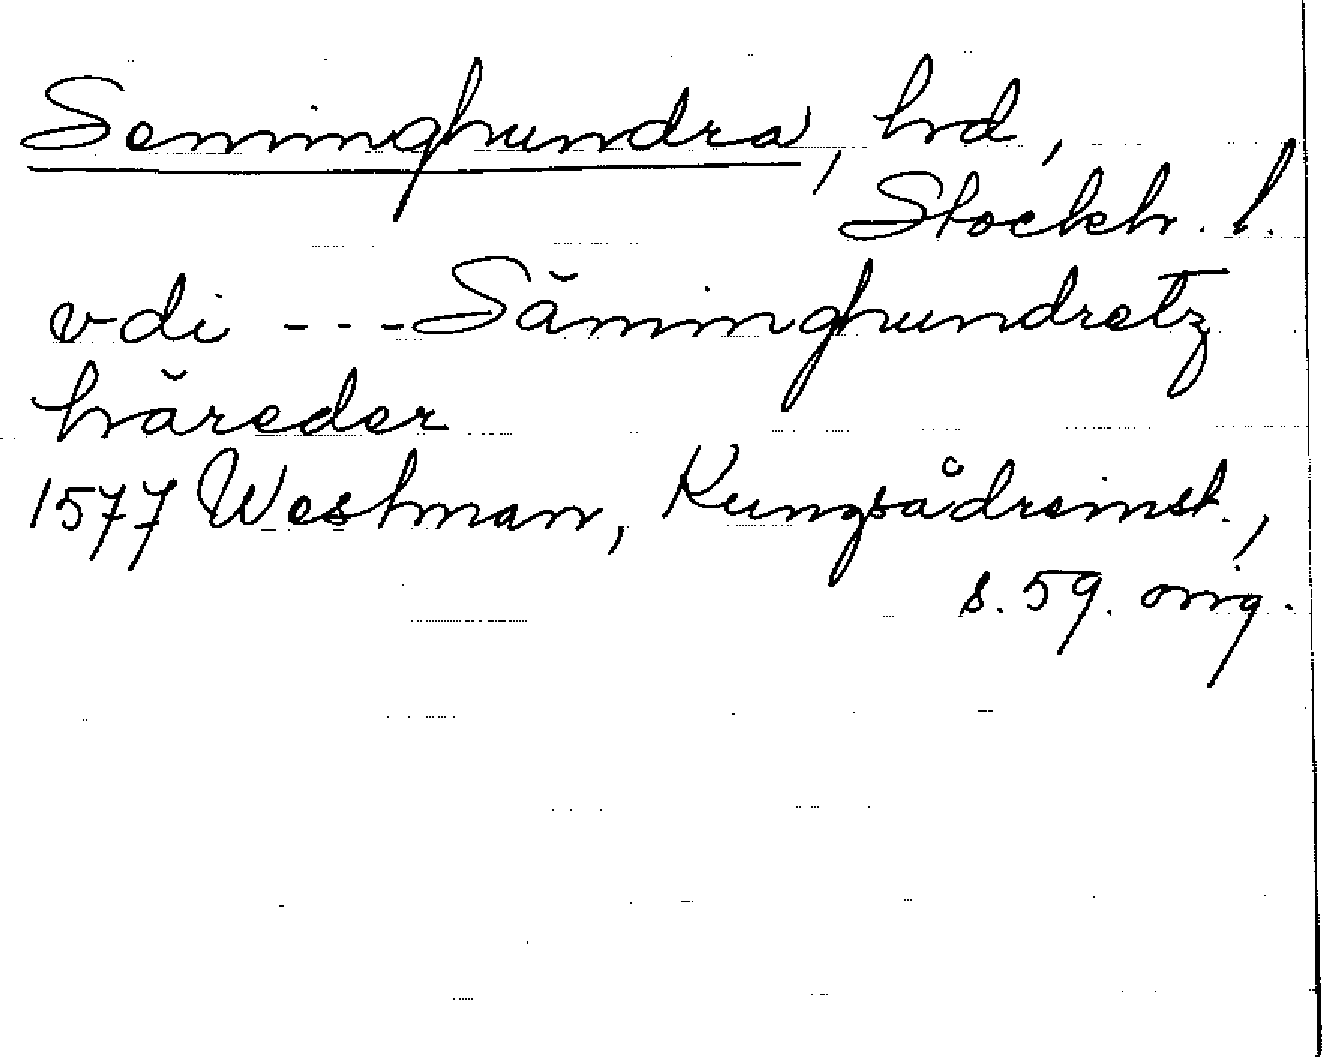 Seminghundra, hrd,
Stockh. l.
vdi - - - Săminghundretz
hăreder
1577 Westman, Kungsådreinst.,
s. 59. orig.